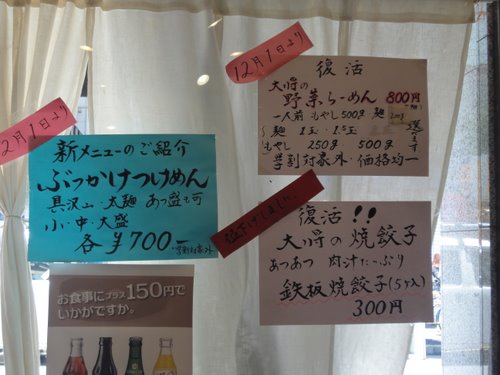 12月1日より
復活
大将の
野菜らーめん 800円
一人前 もやし500g 麺
麺 1玉・1.5玉
もやし 250g 500g
選べます
学割対象外・価格均一
2月1日より
新メニューのご紹介
ぶっかけつけめん
具沢山・太麺 あつ盛も可
小・中・大盛
各¥700-
学割対象外
値下げしました。
復活!!
大将の焼餃子
あつあつ 肉汁たっぷり
鉄板焼餃子(5ヶ入)
300円
お食事にプラス150円で
いかがですか。